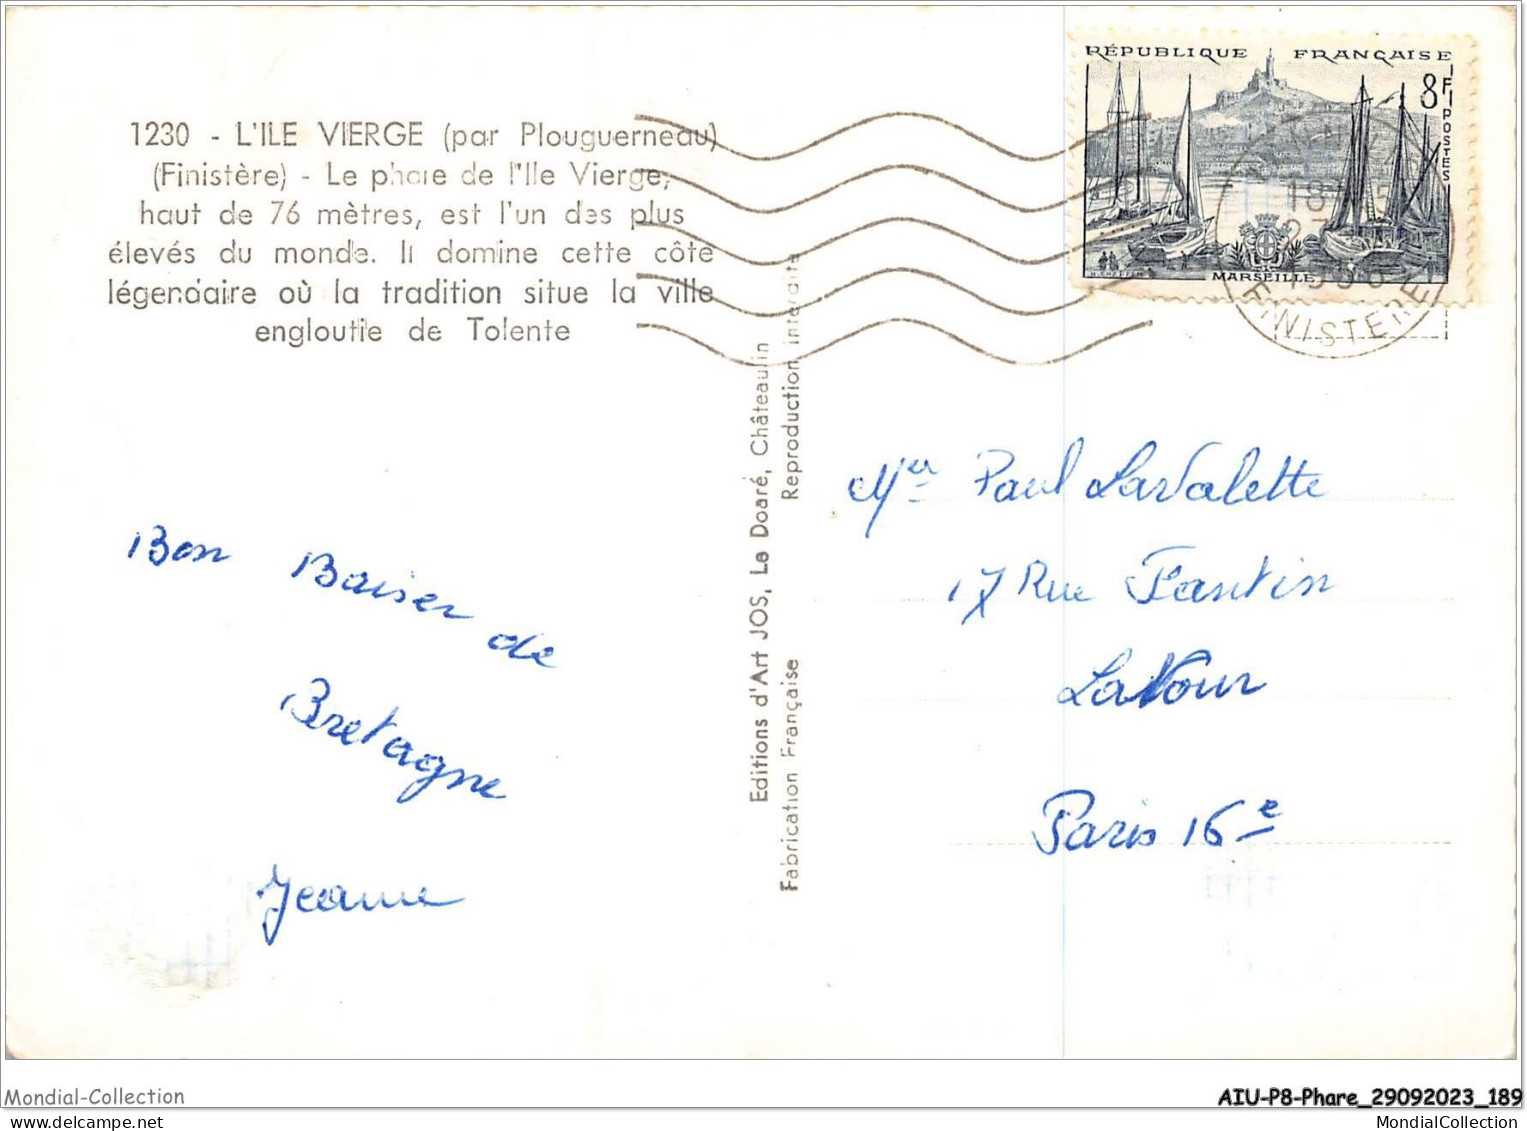 1230 - L'ILE VIERGE (par Plouguerneau)
(Finistère) - Le phare de l'Ile Vierge,
haut de 76 mètres, est l'un des plus
élevés du monde. Il domine cette côte
légendaire où la tradition situe la ville
engloutie de Tolente
RÉPUBLIQUE FRANÇAISE
8F
POSTES
MARSEILLE
FINISTERE
Editions d'Art JOS, Le Doaré, Châteaulin
Fabrication Française
Reproduction interdite
Bon Baiser de
Bretagne
Jeanne
Mer Paul Lavalette
17 Rue Fantin
Latour
Paris 16e
Mondial-Collection
AIU-P8-Phare_29092023_189
mondialcollection.net
MondialCollection